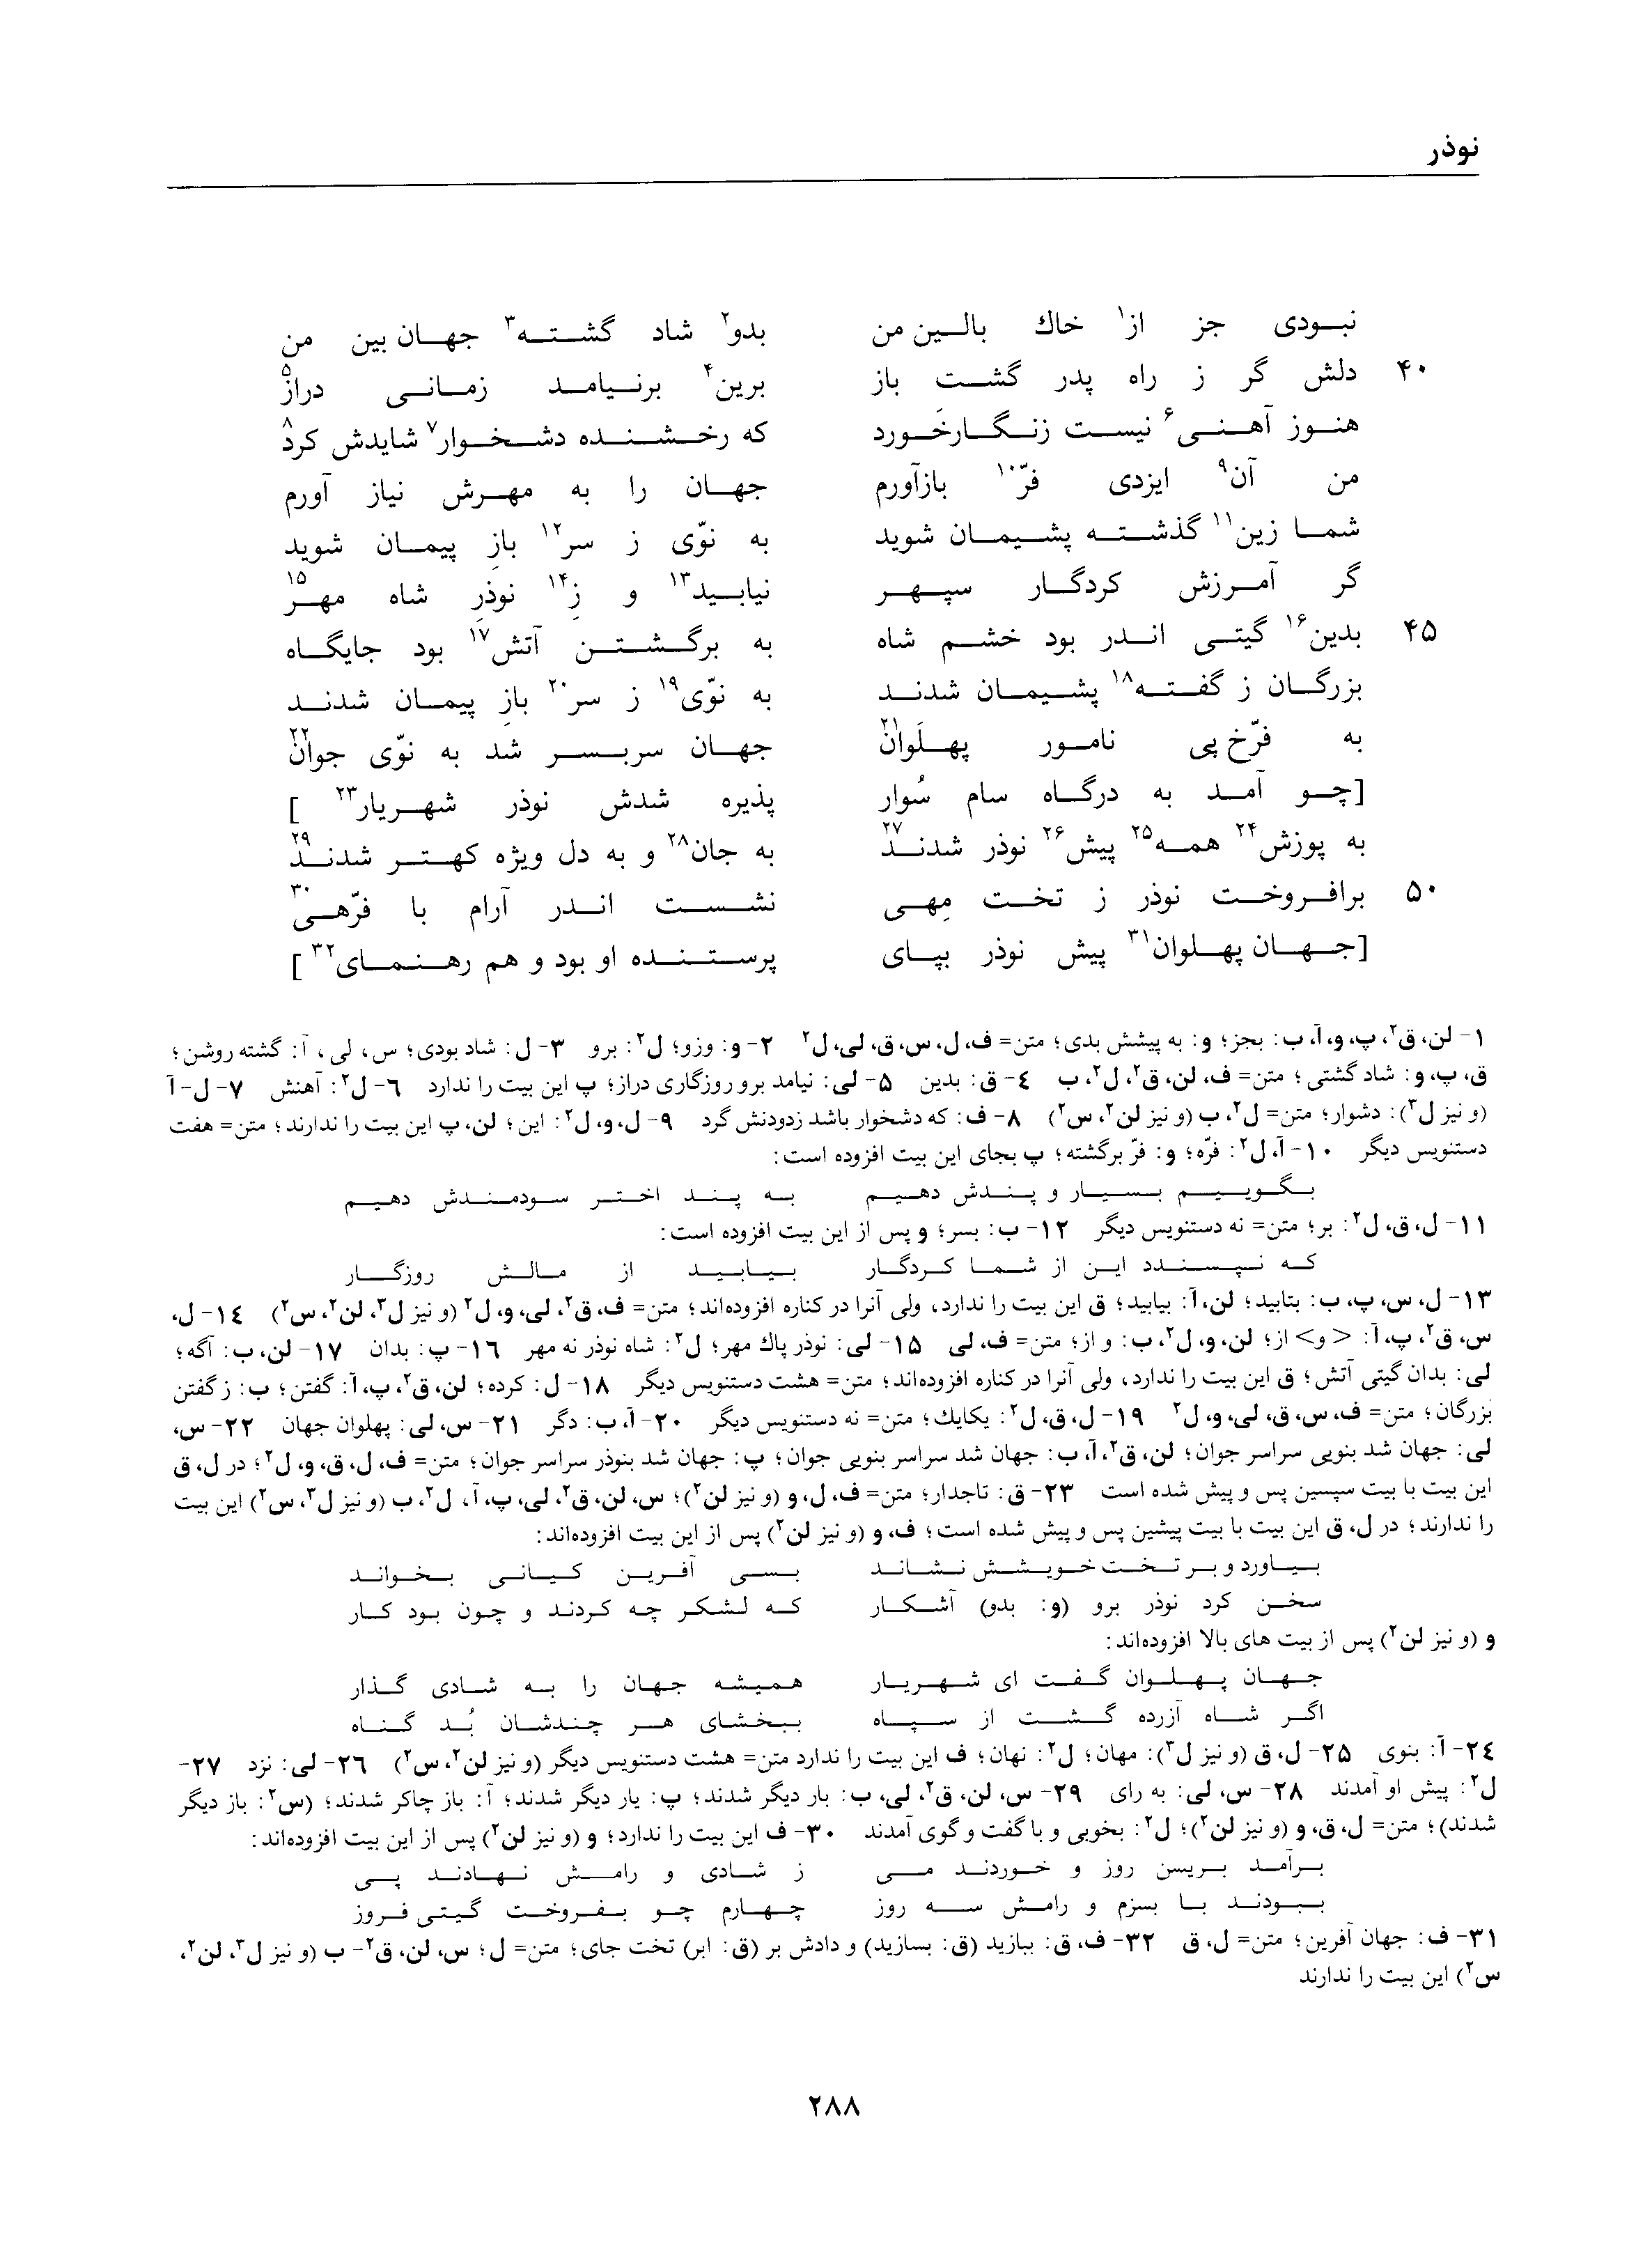 نوذر
نبودی جز از۱ خاك بالین من بدو۲ شاد گشته۳ جهان بین من
۴۰ دلش گر ز راه پدر گشت باز برین۴ برنیامد زمانی دراز۵
هنوز آهنی۶ نیست زنگارخَورد که رخشنده دشخوار۷ شایدش کرد۸
من آن۹ ایزدی فرّ۱۰ بازآورم جهان را به مهرش نیاز آورم
شما زین۱۱ گذشته پشیمان شوید به نوّی ز سر۱۲ بازِ پیمان شوید
گر آمرزش کردگار سپهر نیابید۱۳ و ز۱۴ نوذرِ شاه مهر۱۵
۴۵ بدین۱۶ گیتی اندر بود خشم شاه به برگشتن آتش۱۷ بود جایگاه
بزرگان ز گفته۱۸ پشیمان شدند به نوّی۱۹ ز سر۲۰ بازِ پیمان شدند
به فرّخ پی نامور پهلَوان۲۱ جهان سربسر شد به نوّی جوان۲۲
[چو آمد به درگاه سام سُوار پذیره شدش نوذر شهریار۲۳ ]
به پوزش۲۴ همه۲۵ پیش۲۶ نوذر شدند۲۷ به جان۲۸ و به دل ویژه کهتر شدند۲۹
۵۰ برافروخت نوذر ز تخت مِهی نشست اندر آرام با فرّهی۳۰
[جهان پهلوان۳۱ پیش نوذر بپای پرستنده او بود و هم رهنمای۳۲ ]
۱- لن، ق۲، پ، و، آ، ب: بجز؛ و: به پیشش بدی؛ متن= ف، ل، س، ق، لی، ل۲ ۲- و: وزو؛ ل۲: برو ۳- ل: شاد بودی؛ س، لی، آ: گشته روشن؛
ق، پ، و: شاد گشتی؛ متن= ف، لن، ق۲، ل۲، ب ٤- ق: بدین ۵- لی: نیامد برو روزگاری دراز؛ پ این بیت را ندارد ٦- ل۲: آهنش ۷- ل-آ
(و نیز ل۳): دشوار؛ متن= ل۲، ب (و نیز لن۲، س۲) ۸- ف: که دشخوار باشد زدودنش گرد ۹- ل، و، ل۲: این؛ لن، پ این بیت را ندارند؛ متن= هفت
دستنویس دیگر ۱۰- آ، ل۲: فرّه؛ و: فرّ برگشته؛ پ بجای این بیت افزوده است:
بگوییم بسیار و پندش دهیم به پند اختر سودمندش دهیم
۱۱- ل، ق، ل۲: بر؛ متن= نه دستنویس دیگر ۱۲- ب: بسر؛ و پس از این بیت افزوده است:
که نپسندد این از شما کردگار بیابید از مالش روزگار
۱۳- ل، س، پ، ب: بتابید؛ لن، آ: بیابید؛ ق این بیت را ندارد، ولی آنرا در کناره افزوده‌اند؛ متن= ف، ق۲، لی، و، ل۲ (و نیز ل۳، لن۲، س۲) ۱٤- ل،
س، ق۲، پ، آ: <و> از؛ لن، و، ل۲، ب: و از؛ متن= ف، لی ۱۵- لی: نوذر پاك مهر؛ ل۲: شاه نوذر نه مهر ۱٦- پ: بدان ۱۷- لن، ب: آگه؛
لی: بدان گیتی آتش؛ ق این بیت را ندارد، ولی آنرا در کناره افزوده‌اند؛ متن= هشت دستنویس دیگر ۱۸- ل: کرده؛ لن، ق۲، پ، آ: گفتن؛ ب: ز گفتن
بزرگان؛ متن= ف، س، ق، لی، و، ل۲ ۱۹- ل، ق، ل۲: یکایك؛ متن= نه دستنویس دیگر ۲۰- آ، ب: دگر ۲۱- س، لی: پهلوان جهان ۲۲- س،
لی: جهان شد بنویی سراسر جوان؛ لن، ق۲، آ، ب: جهان شد سراسر بنویی جوان؛ پ: جهان شد بنوذر سراسر جوان؛ متن= ف، ل، ق، و، ل۲؛ در ل، ق
این بیت با بیت سپسین پس و پیش شده است ۲۳- ق: تاجدار؛ متن= ف، ل، و (و نیز لن۲)؛ س، لن، ق۲، لی، پ، آ، ل۲، ب (و نیز ل۳، س۲) این بیت
را ندارند؛ در ل، ق این بیت با بیت پیشین پس و پیش شده است؛ ف، و (و نیز لن۲) پس از این بیت افزوده‌اند:
بیاورد و بر تخت خویشش نشاند بسی آفرین کیانی بخواند
سخن کرد نوذر برو (و: بدو) آشکار که لشکر چه کردند و چون بود کار
و (و نیز لن۲) پس از بیت های بالا افزوده‌اند:
جهان پهلوان گفت ای شهریار همیشه جهان را به شادی گذار
اگر شاه آزرده گشت از سپاه ببخشای هر چندشان بُد گناه
۲٤- آ: بنوی ۲۵- ل، ق (و نیز ل۳): مهان؛ ل۲: نهان؛ ف این بیت را ندارد متن= هشت دستنویس دیگر (و نیز لن۲، س۲) ۲٦- لی: نزد ۲۷-
ل۲: پیش او آمدند ۲۸- س، لی: به رای ۲۹- س، لن، ق۲، لی، ب: بار دیگر شدند؛ پ: یار دیگر شدند؛ آ: باز چاکر شدند؛ (س۲: باز دیگر
شدند)؛ متن= ل، ق، و (و نیز لن۲)؛ ل۲: بخوبی و با گفت و گوی آمدند ۳۰- ف این بیت را ندارد؛ و (و نیز لن۲) پس از این بیت افزوده‌اند:
برآمد بریسن روز و خوردند می ز شادی و رامش نهادند پی
ببودند با بسزم و رامش سه روز چهارم چو بفروخت گیتی فروز
۳۱- ف: جهان آفرین؛ متن= ل، ق ۳۲- ف، ق: بیازید (ق: بسازید) و دادش بر (ق: ابر) تخت جای؛ متن= ل؛ س، لن، ق۲- ب (و نیز ل۳، لن۲،
س۲) این بیت را ندارند
۲۸۸